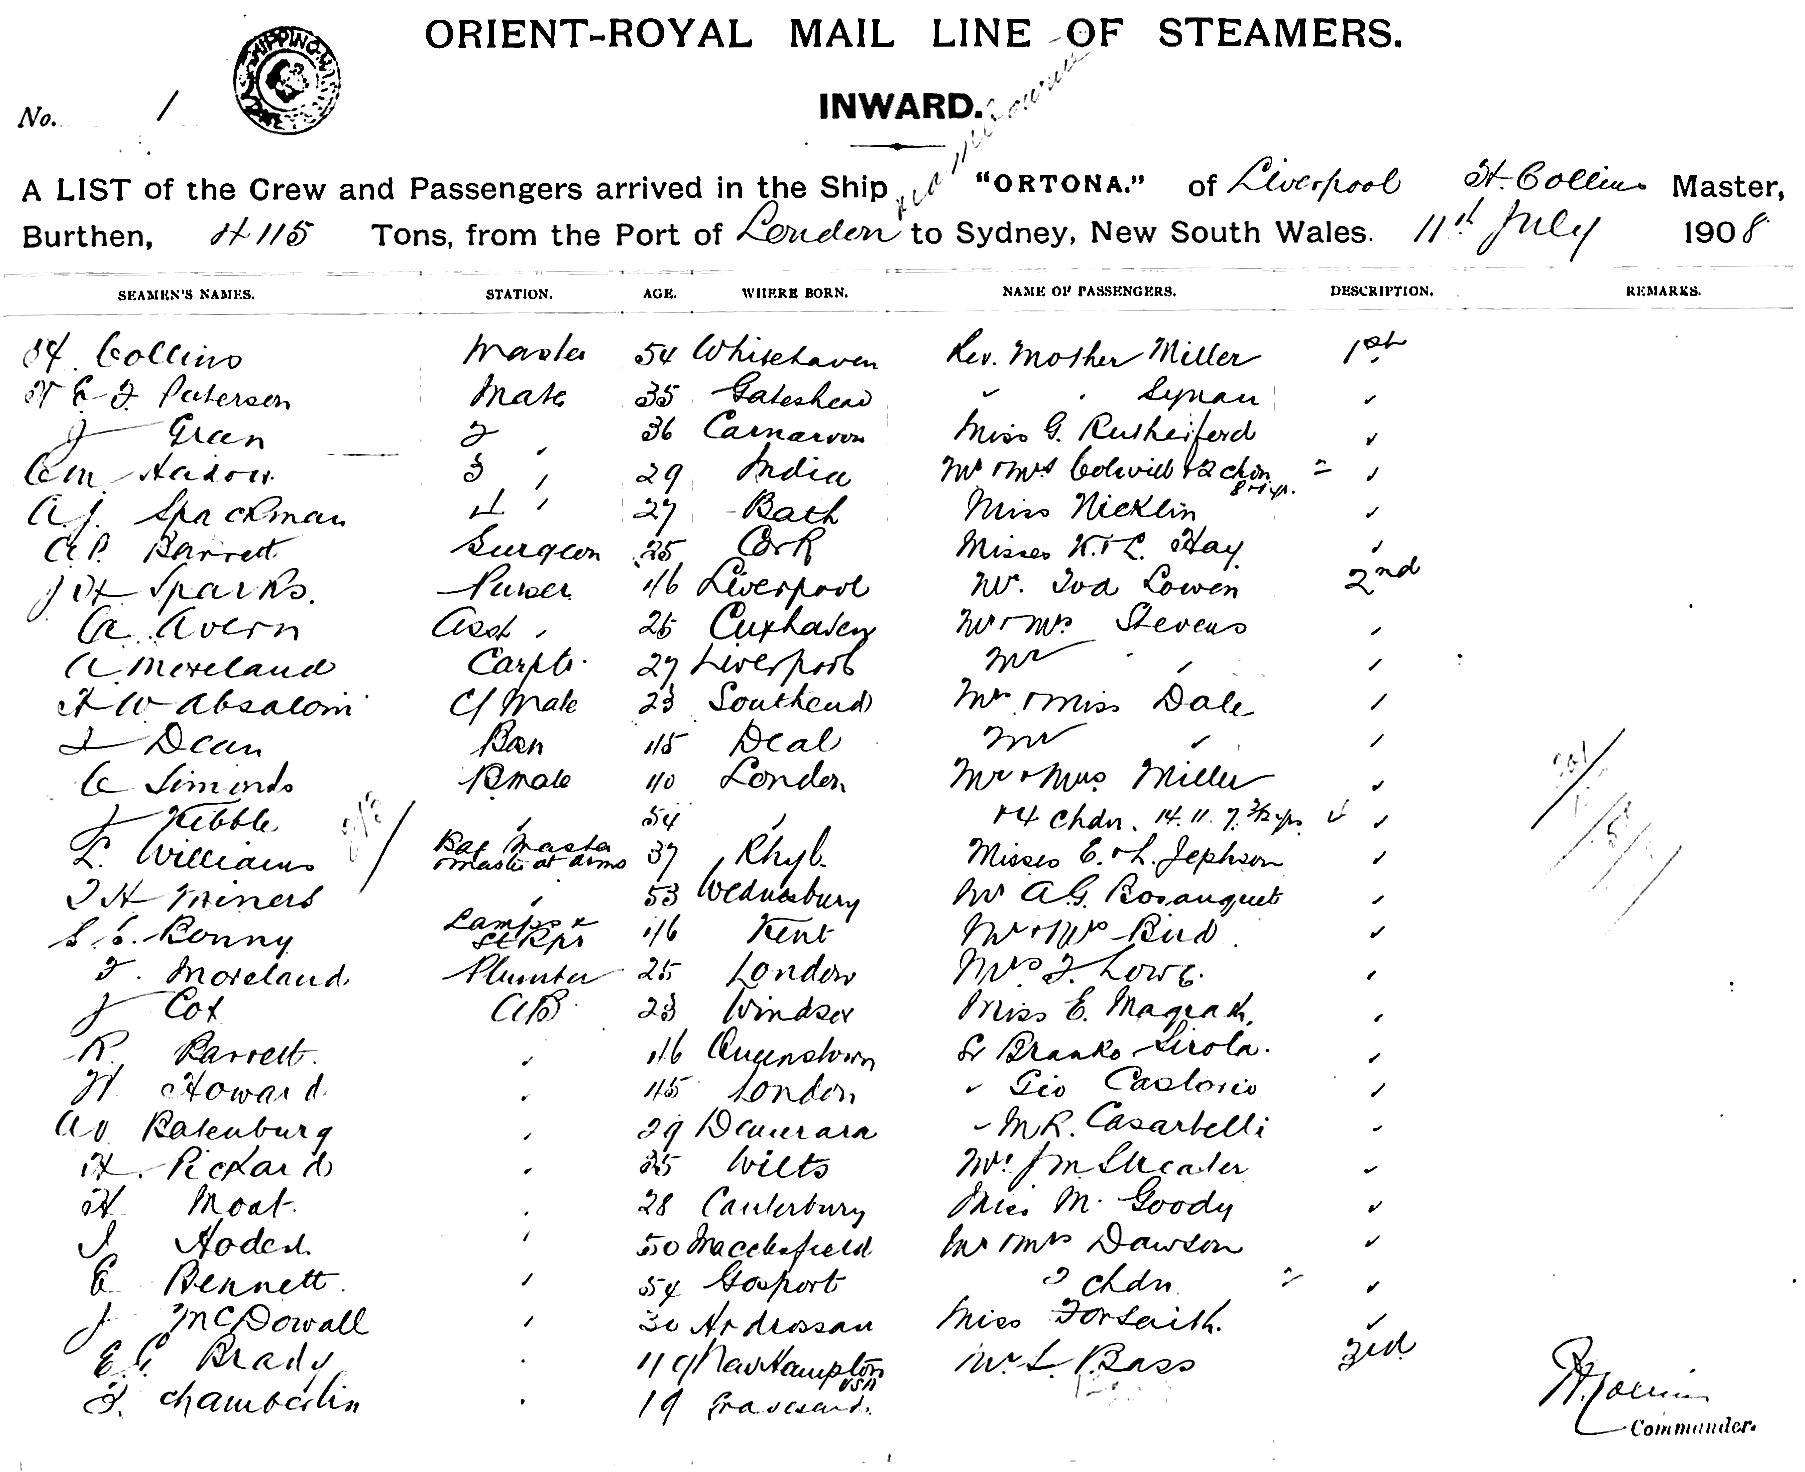 ORIENT-ROYAL MAIL LINE OF STEAMERS.
INWARD.
No. 1
via Melbourne
A LIST of the Crew and Passengers arrived in the Ship "ORTONA." of Liverpool H. Collins Master,
Burthen, 4115 Tons, from the Port of London to Sydney, New South Wales. 11th July 1908
SEAMEN'S NAMES. STATION. AGE. WHERE BORN. NAME OF PASSENGERS. DESCRIPTION. REMARKS.
H. Collins Master 54 Whitehaven Rev. Mother Miller 1st
Paterson Mate 35 Gateshead " " Synan "
J Gran 2 " 36 Carnarvon Miss G. Rutherford "
3 " 29 India Mr & Mrs Colwill & 2 chdn "
A J. Spackman 4 " 27 Bath Miss Nicklin "
A.P. Barrett Surgeon 25 Cork Misses K. & L. Hay "
J H Sparks. Purser 46 Liverpool Mr. Tod Lowen 2nd
A Avern Asst " 25 Cuxhaven Mr & Mrs Stevens "
A. Moreland Carptr. 27 Liverpool Mr " " "
H W Absalom C/ Mate 23 Southend Mr & Miss Dale "
J Dean Bsn 45 Deal Mr " "
C Simonds B mate 40 London Mr & Mrs Miller "
J Kibble " 54 " & 4 chdn. 14. 11. 7. "
L. Williams Bag Master & Master at Arms 37 Rhyl. Misses E. & L. Jephson "
J H Miners " 53 Wednesbury Mr A.G. Bosanquet "
S. S. Bonny Lamps & St Kpr 46 Kent Mr & Mrs Bird "
F. Moreland Plumber 25 London Mrs F. Lowe. "
J Cox AB 23 Windsor Miss E. Magrath. "
R. Barrett. " 46 Queenstown Sr Branko Sirola. "
H Howard " 45 London " Gio Castorio "
Batenburg " 29 Demerara " M R. Casarbelli "
H. Pickard " 35 Wilts Mr. J M Sheater "
H Moat. " 28 Canterbury Miss M. Goody "
" 50 Macclesfield Mr & Mrs Dawson "
E Bennett. " 54 Gosport 2 chdn "
J McDowall " 30 Ardrossan Miss Forsaith. "
E. G. Brady " 49 New Hampton USA Mr. L. Bass 3rd
F. Chamberlin " 19 Gravesend.
H. Collins
Commander.